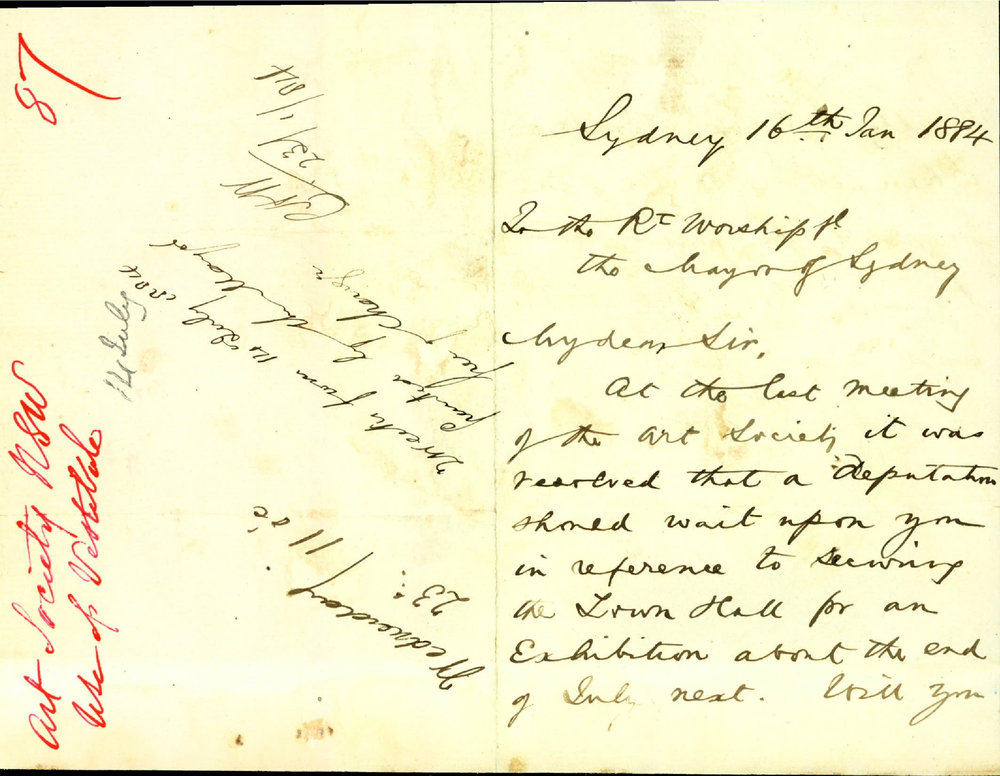 87
Art Society NSW
Use of Vestibule
14 July
from 14 July
granted by the Mayor
free of charge
23/1/84
Wednesday
23rd
11 o'c
Sydney 16th Jan 1884
To the Rt Worshipfl
the Mayor of Sydney
My dear Sir,
At the last meeting
of the Art Society it was
resolved that a deputation
should wait upon you
in reference to securing
the Town Hall for an
Exhibition about the end
of July next. Will you